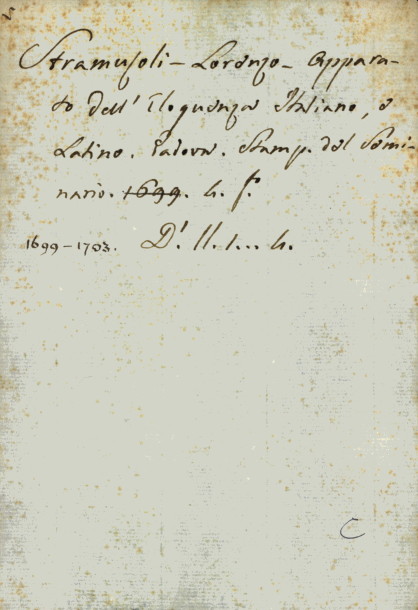 Stramusoli - Lorenzo - Appara-
to dell' Eloquenza Italiana, e
Latina. Padova. Stamp. del Semi-
nario. 1699. 4. f.º
1699-1703. D'. II. 1... 4.
C